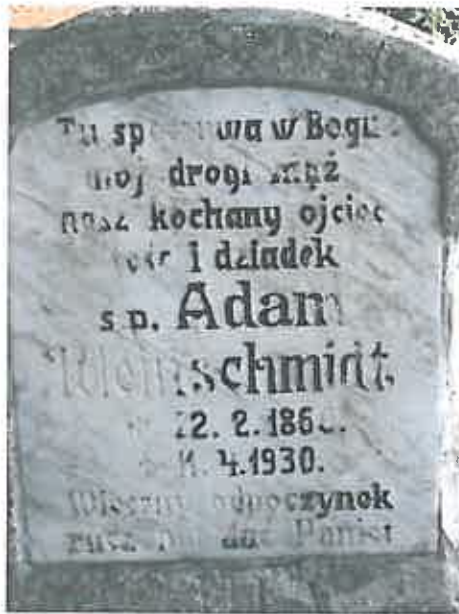 Tu spoczywa w Bogu
mój drogi mąż
nasz kochany ojciec
teść i dziadek
ś p. Adam
Kleinschmidt.
22. 2.
4.1930.
Wieczny odpoczynek
racz mu dać Panie!